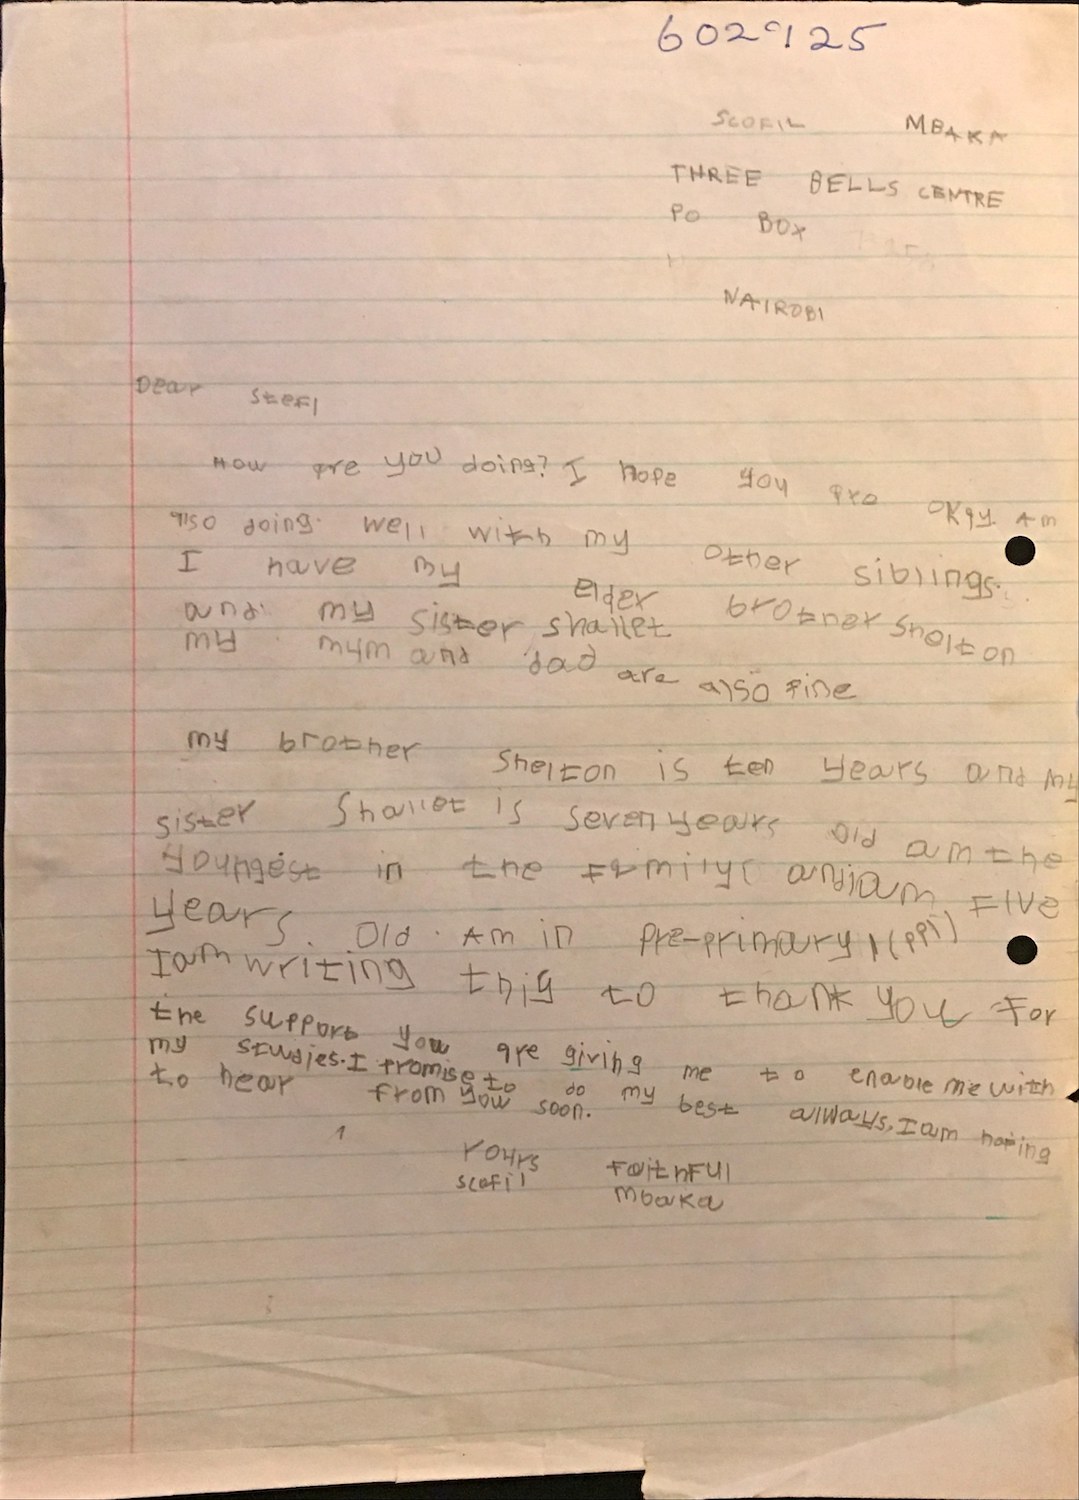 602125
SCOFIL MBAKA
THREE BELLS CENTRE
PO BOX
NAIROBI
Dear Stefi
How are you doing? I hope you are okay. Am
also doing well with my other siblings.
I have my elder brother Shelton
and my sister shallet
my mum and dad are also fine
my brother Shelton is ten years and my
sister Shallet is seven years old am the
youngest in the family and iam Five
years. Old. Am in pre-primary 1 (pp1)
I am writing this to thank you For
the support you are giving me to enable me with
my studies. I promise to do my best always. I am hoping
to hear from you soon.
Yours Faithful
Scofil Mbaka